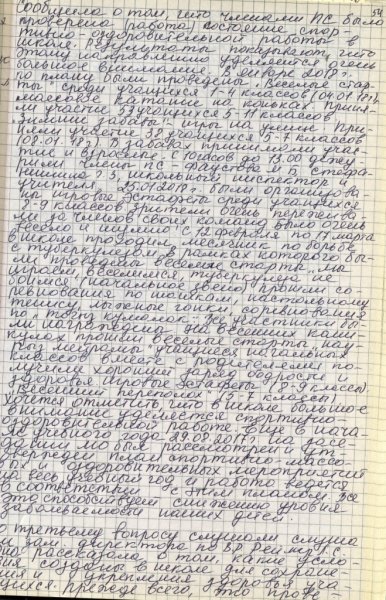 Сообщила о том, что членами ПС было
проверена работа состояние спор-
тивно-оздоровительной работы в
школе. Результаты показывают, что
этому направлению уделяется очень
большое внимание. В январе 2018 г.
по плану были проведены "Веселые стар-
ты среди учащихся 1-4 классов (04.01.18г.),
массовое катание на коньках приня-
ли участие 29 учащихся 5-11 классов,
зимние забавы "Игры на улице" при-
няли участие 38 учащихся 5-7 классов
(08.01.18г). В забавах принимали учас-
тие и взрослые. С 10 часов до 13.00 дежу
рили члены ПС
школьный инспектор и
учителя. 25.01.2018 г. были организова-
ны игровые эстафеты среди учащихся
8-9 классов. Зрители очень пережива-
ли за членов своих команд, было очень
весело и шумно. С 12 февраля по 17 марта
в школе проходил месячник по борьбе
с туберкулезом, в рамках которого бы-
ли проведены веселые старты "Мы
играем, веселимся, туберкулеза не
боимся" (начальное звено), прошли со-
ревнования по шашкам, настольному
теннису, лыжные гонки, соревнования
по тогыз кумалак. Все участники бы-
ли награждены. На весенних кани-
кулах прошли веселые старты, нау-
рыз мейрамы учащиеся начальных
классов вместе с родителями по-
лучили хороший заряд бодрости и
здоровья, игровые эстафеты (8-9 классы),
весенний переполох (5-7 классы)
Хочется отметить, что в школе большое
внимание уделяется спортивно-
оздоровительной работе. Еще в нача-
ле учебного года 29.08.2017 г. на засе-
дании МО был рассмотрен и ут
вержден план спортивно-массо
вых и оздоровительных мероприятий
на весь учебный год и работа ведется
в соответствии с этим планом. Все
это способствует снижению уровня
заболеваемости наших детей.
о третьему вопросу слушали
зам. директора по ВР
рассказала о том, какие усло-
вия созданы в школе для сохране
ния и укрепления здоровья уча-
щихся. Прежде всего, это